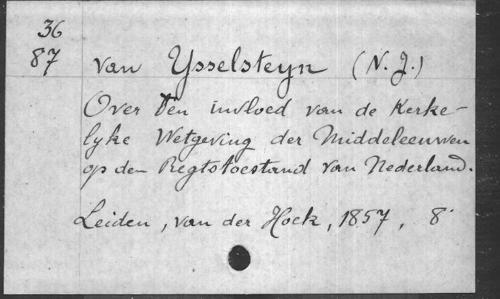 36
87 van Ysselsteyn (N. J.)
Over den invloed van de Kerke-
lyke Wetgeving der Middeleeuwen
op den Regtstoestand van Nederland.
Leiden, van der Hoek, 1857, 8°